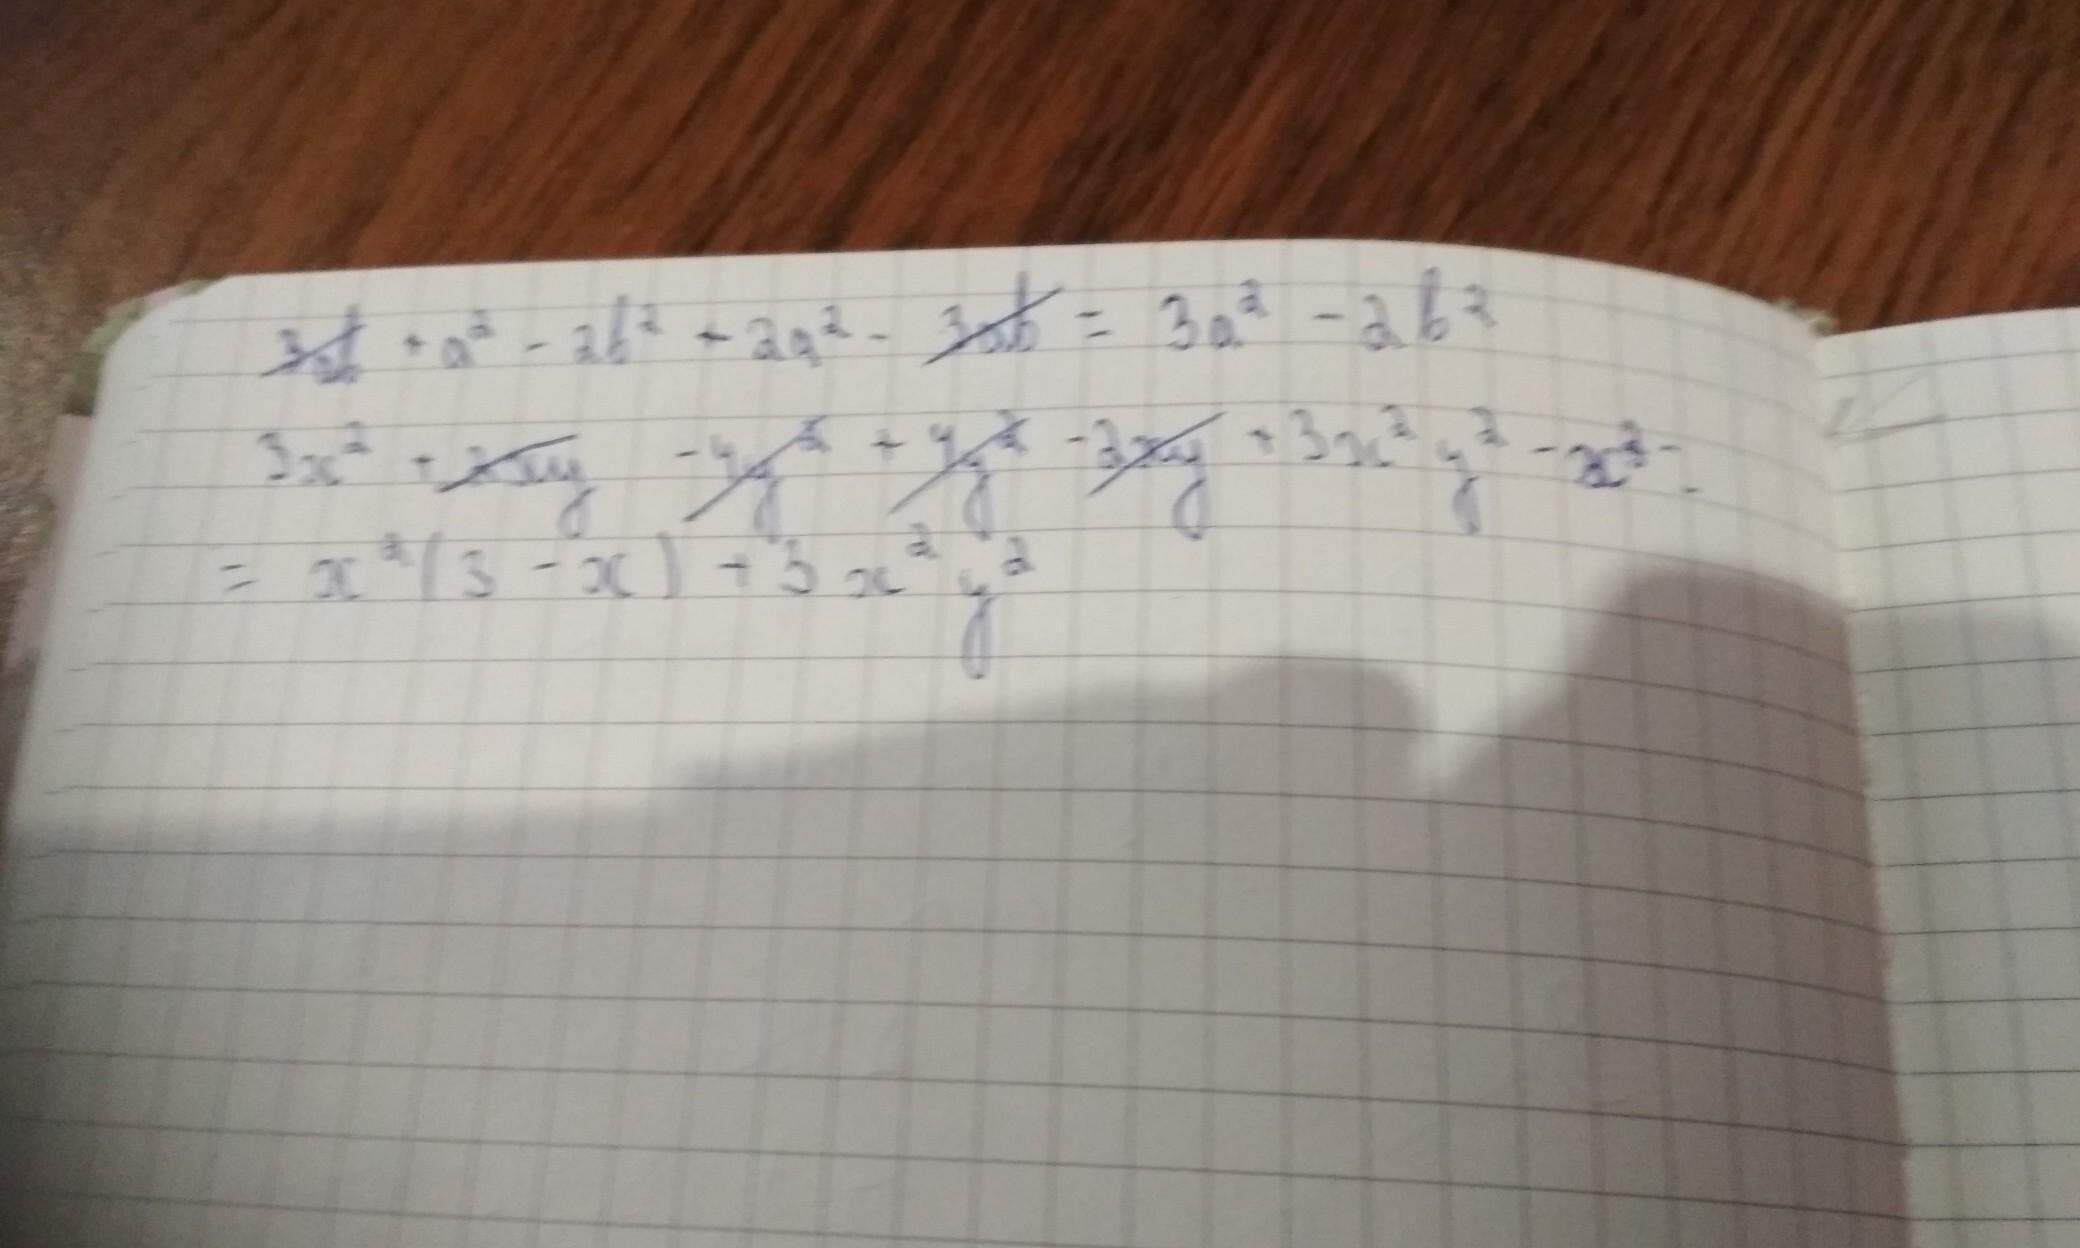 3ab + a² - 2b² + 2a² - 3ab = 3a² - 2b²
3x² + 2xy - 4y² + 4y² - 2xy + 3x²y² - x³ =
= x²(3 - x) + 3x²y²